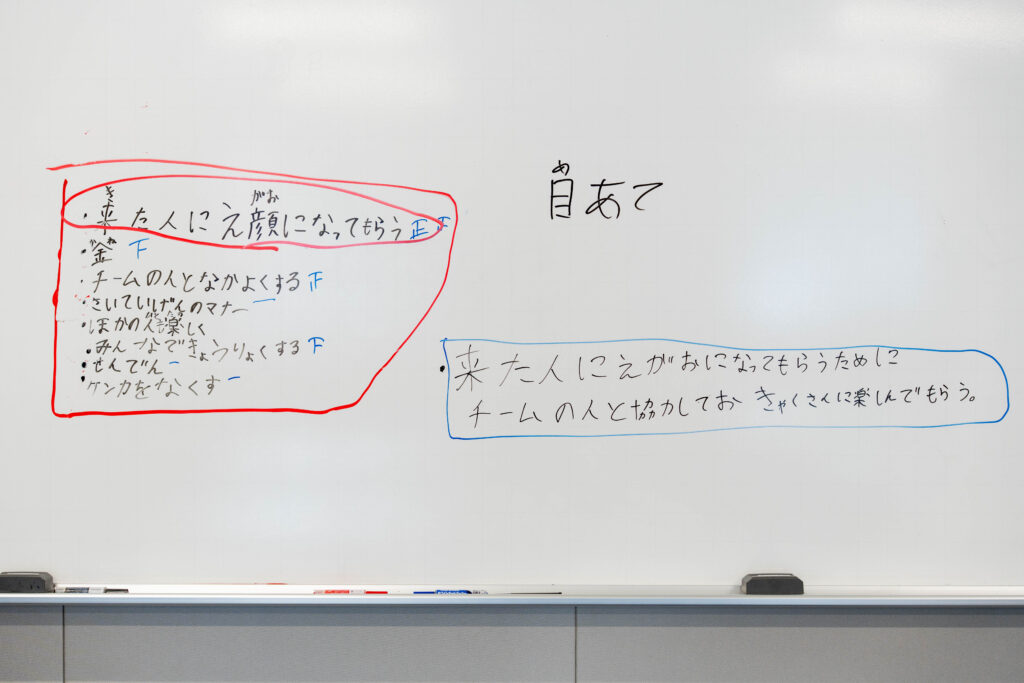 目あて
・来た人にえ顔になってもらう 正 正
・金 下
・チームの人となかよくする 正
・さいていげんのマナー 一
・ほかの人楽しく
・みんなできょうりょくする 下
・せんでん 一
・ケンカをなくす 一
・来た人にえがおになってもらうために
チームの人と協力しておきゃくさんに楽しんでもらう。